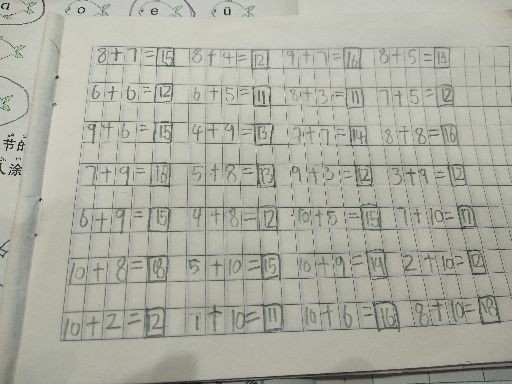 a o e ü
8+7=15 8+4=12 9+7=16 8+5=13
6+6=12 6+5=11 8+3=11 7+5=12
9+6=15 4+9=13 7+7=14 8+8=16
节的
7+9=16 5+8=13 9+3=12 3+9=12
涂
6+9=15 4+8=12 10+5=15 7+10=17
10+8=18 5+10=15 10+9=19 2+10=12
10+2=12 1+10=11 10+6=16 8+10=18